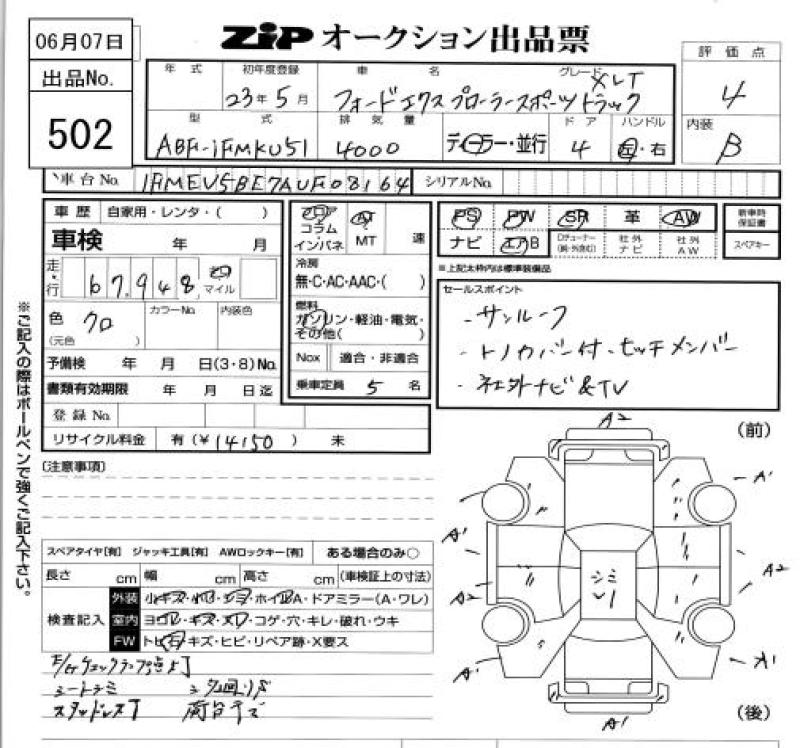 06月07日
ZIP オークション出品票
出品No.
502
年式 初年度登録 車名 グレード 評価点
23年5月 フォードエクスプローラースポーツトラック XLT 4
型式 排気量 ドア ハンドル 内装
ABA-1FMKU51 4000 ディーラー・並行 4 左・右 B
車台No. 1FMEU5BE7AUF08164 シリアルNo.
車歴 自家用・レンタ・( )
車検 年 月
走・行 67,948 マイル
色 クロ
(元色 )
カラーNo. 内装色
予備検 年 月 日(3・8)No.
書類有効期限 年 月 日迄
登録No.
リサイクル料金 有(¥14150) 未
フロア
コラム
・インパネ
AT
MT
速
冷房
無・C・AC・AAC・( )
燃料
ガソリン・軽油・電気・
その他( )
Nox 適合・非適合
乗車定員 5 名
PS PW SR 革 AW
ナビ エアB
社外
ナビ
社外
AW
新車時
保証書
スペアキー
※上記太枠内は標準装備品
セールスポイント
・サンルーフ
・トノカバー付・ヒッチメンバー
・社外ナビ&TV
※ご記入の際はボールペンで強くご記入下さい。
〔注意事項〕
スペアタイヤ[有] ジャッキ工具[有] AWロックキー[有] ある場合のみ○
長さ cm 幅 cm 高さ cm (車検証上の寸法)
検査記入
外装 小キズ・小凹・シミ・ホイルA・ドアミラー(A・ワレ)
室内 ヨゴレ・キズ・スレ・コゲ・穴・キレ・破れ・ウキ
FW トビ石・キズ・ヒビ・リペア跡・X要ス
E/Gチェックランプ点灯
シートシミ
スタッドレスT
(前)
A2
A1
A1
A2
A2
シミ
A1
A1
A1
(後)